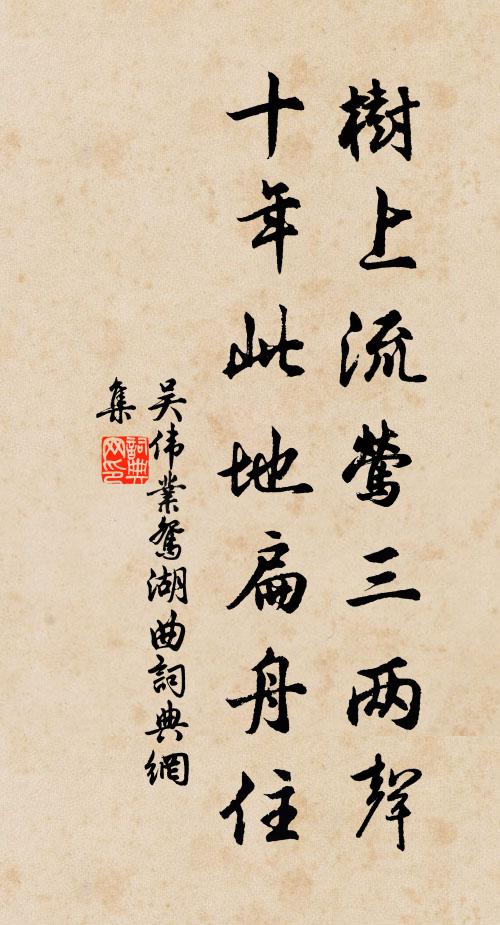 樹上流鶯三两聲
十年此地扁舟住
吴伟業鴛湖曲詞典網
集
詞典
网印